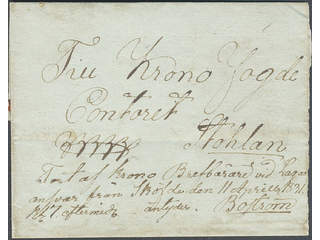 Till Krono Fogde
Contoret
Stohlan
Tort af Krono Brefbärare vid Laga
ansvar från Sköfde den 11 April 1821.
Kl 7 eftermid antydes. Boström